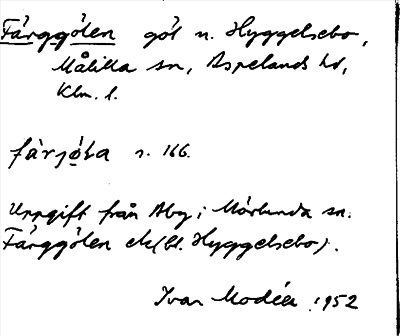 Färggölen göl n. Hyggelsebo,
Målilla sn, Aspelands hd,
Klm. l.
fàrjø̀la s. 166.
Uppgift från Åby i Mörlunda sn.
Färggölen ek (bl. Hyggelsebo).
Ivar Modéer 1952